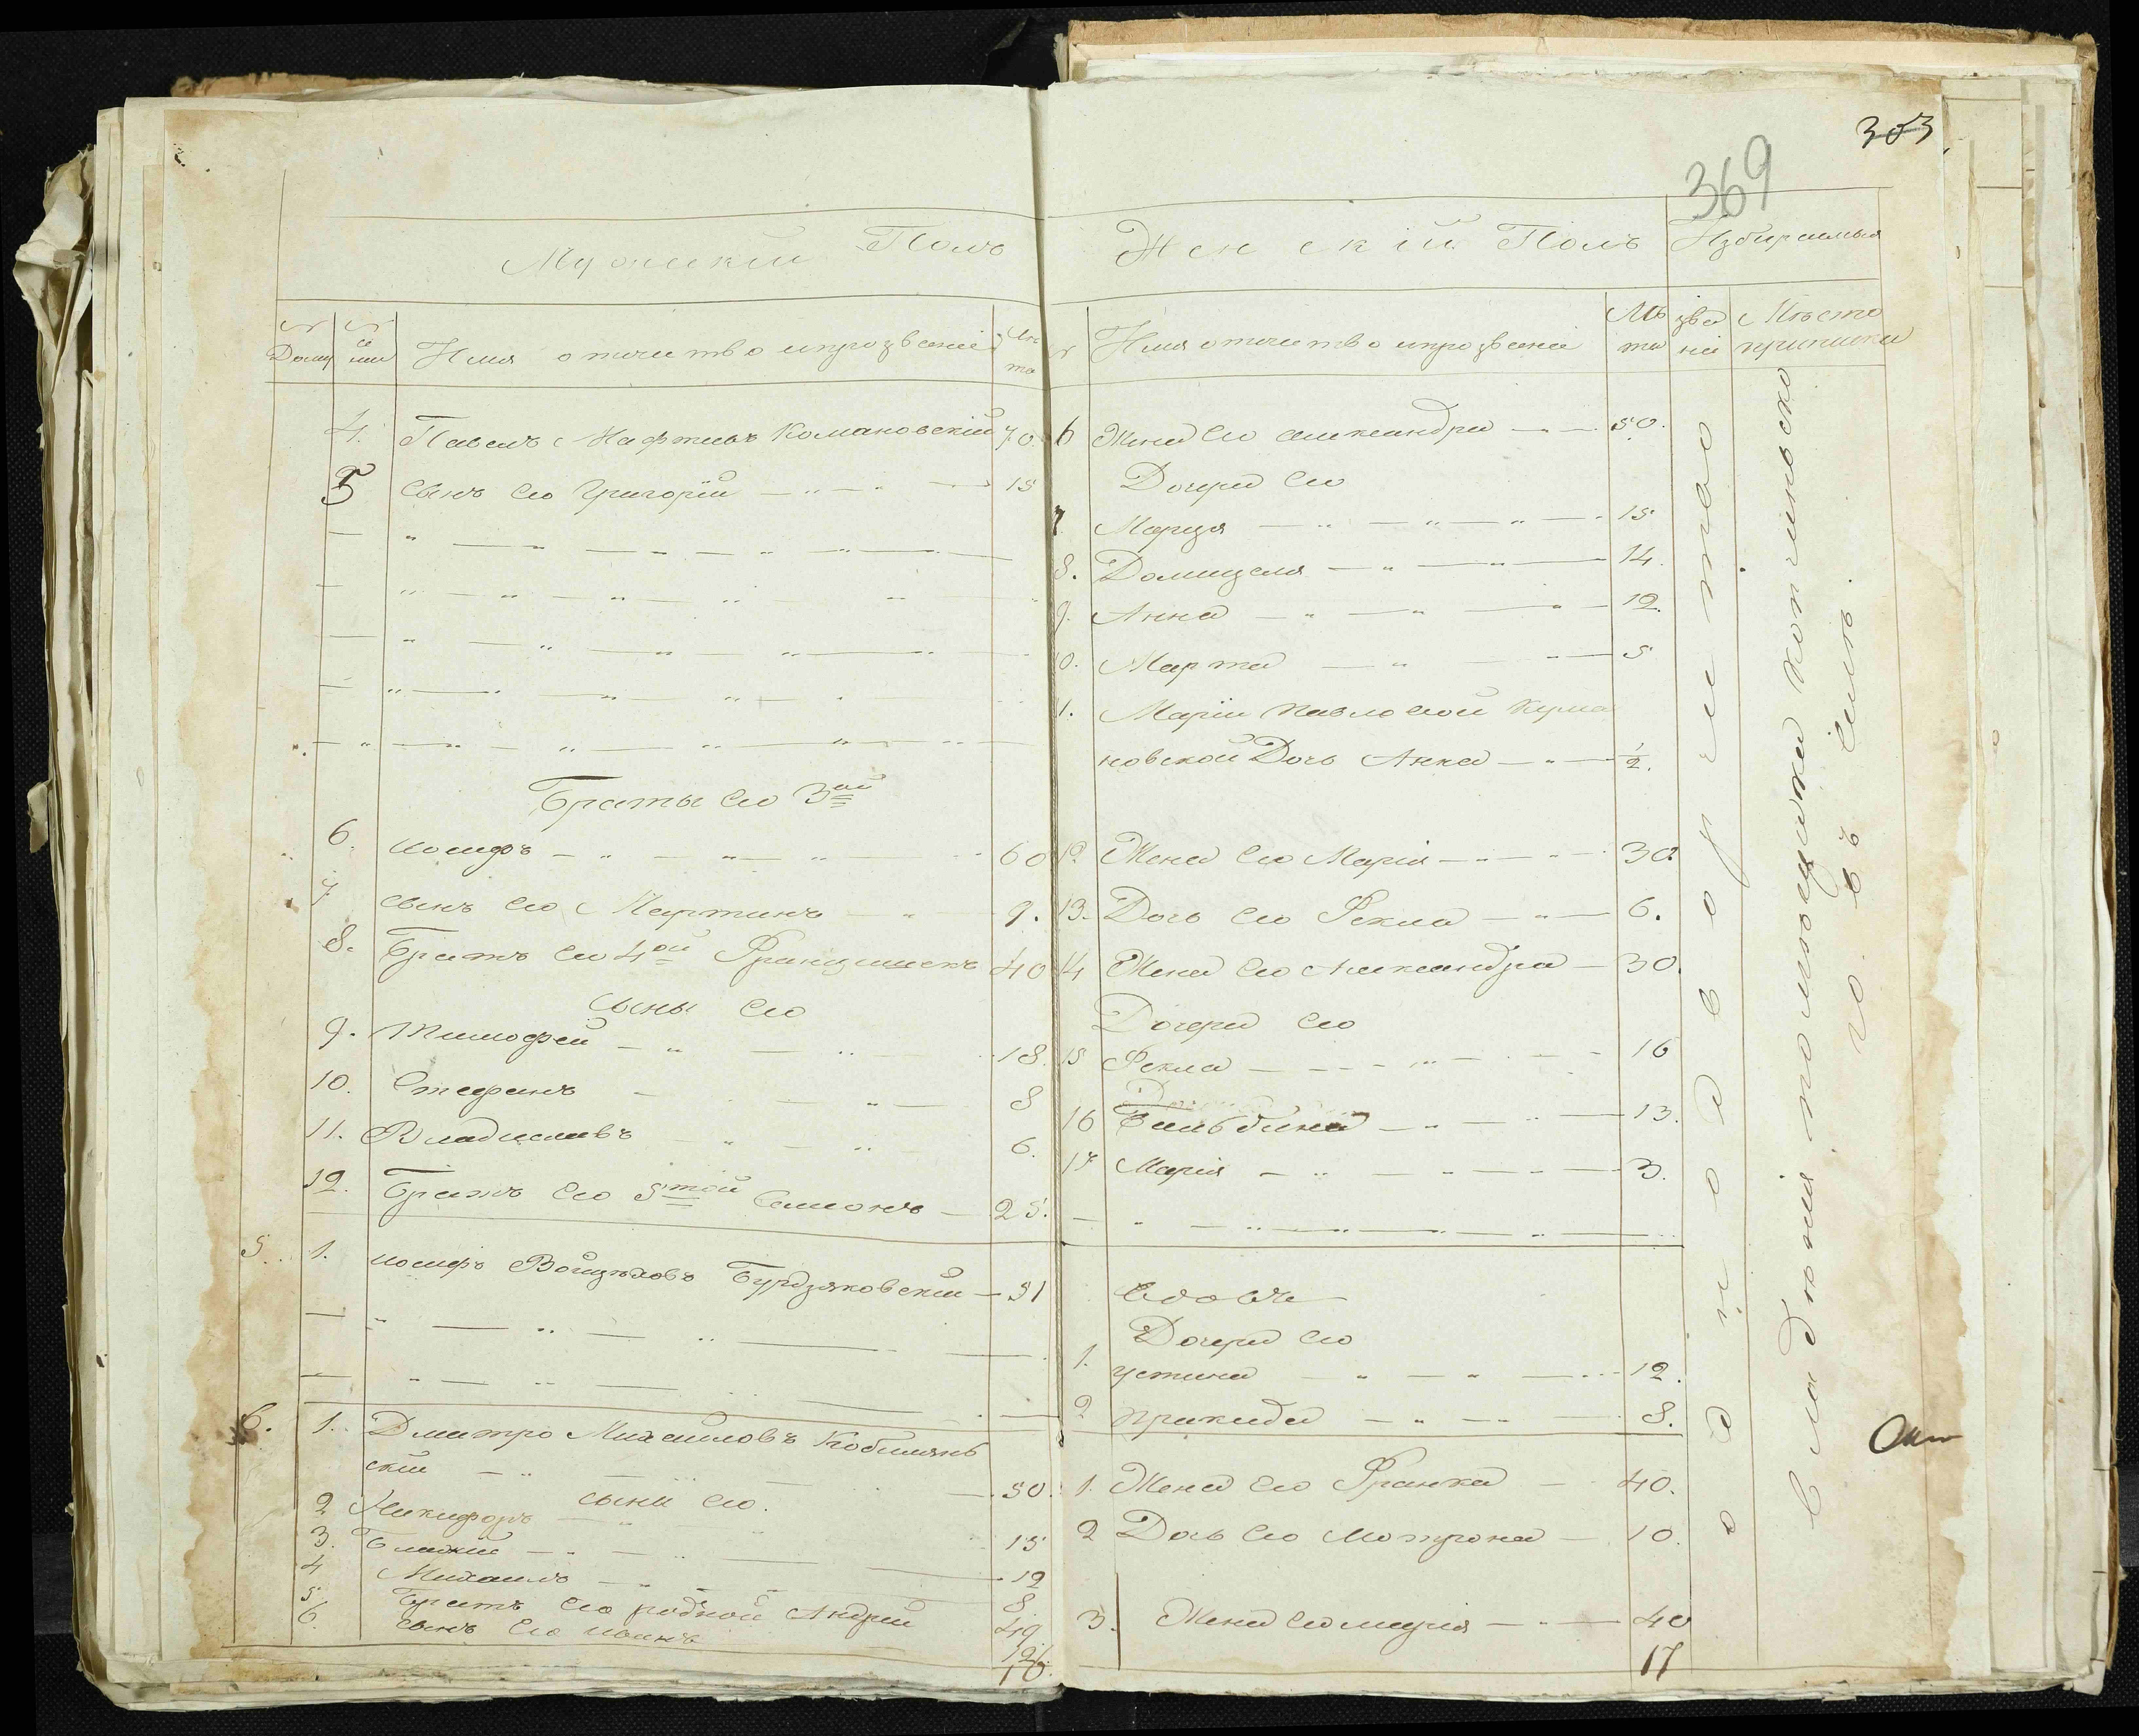 303
369
Мужеский Полъ
№ Дому
№ се мьи
Имя отчество и прозвание
Ле та
4. Павелъ Мафтеевъ Комановскій 70.
5 сынъ Его Григорій 15
Браты Его 3ой
6. иосифъ 60
7 сынъ Его Мартинъ 9.
8. Братъ Его 4ой Францишекъ 40
сыны Его
9. Тимофей 18.
10. Стефанъ 8
11. Владиславъ 6.
12. Братъ Его 5той Симонъ 25.
5. 1. иосифъ Войцеховъ Бурдзяковскій 51
6. 1. Дмитро Михайловъ Кобилянь
скій 50
сыни Его.
2 Никифоръ 15
3. 12
4 Михаилъ 8
5 Братъ Его родной Андрей 49
6. сынъ Его иванъ 12
16.
Женскій Полъ
Избираемыя
№
Имя отчество и прозвание
Ле та
зва ніи
Место приписки
6 Жена Его александра 50.
Дочери Его
7. Марця 15
8. Домицеля 14.
9. Анна 12.
10. Марта 5
11. Маріи Павловой Кума
новской Дочь Анна 1/2.
12 Жена Его Марія 30.
13. Дочь Его Фекла 6.
14 Жена Его Александра 30.
Дочери Его
15 Фекла 16
16 13.
17 Марія 3.
Вдовъ
Дочери Его
1. устина 12.
2 8.
1. Жена Его Франка 40.
2 Дочь Его Мотрона 10.
3. Жена Его марія 40
17
однодворцы
въ Селе.